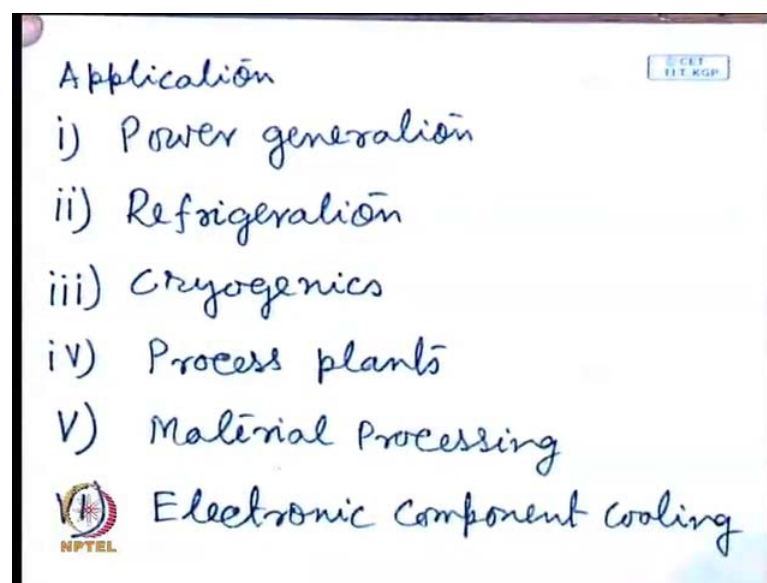 Application
© CET
I.I.T. KGP
i) Power generation
ii) Refrigeration
iii) Cryogenics
iv) Process plants
V) Material Processing
VI) Electronic Component cooling
NPTEL